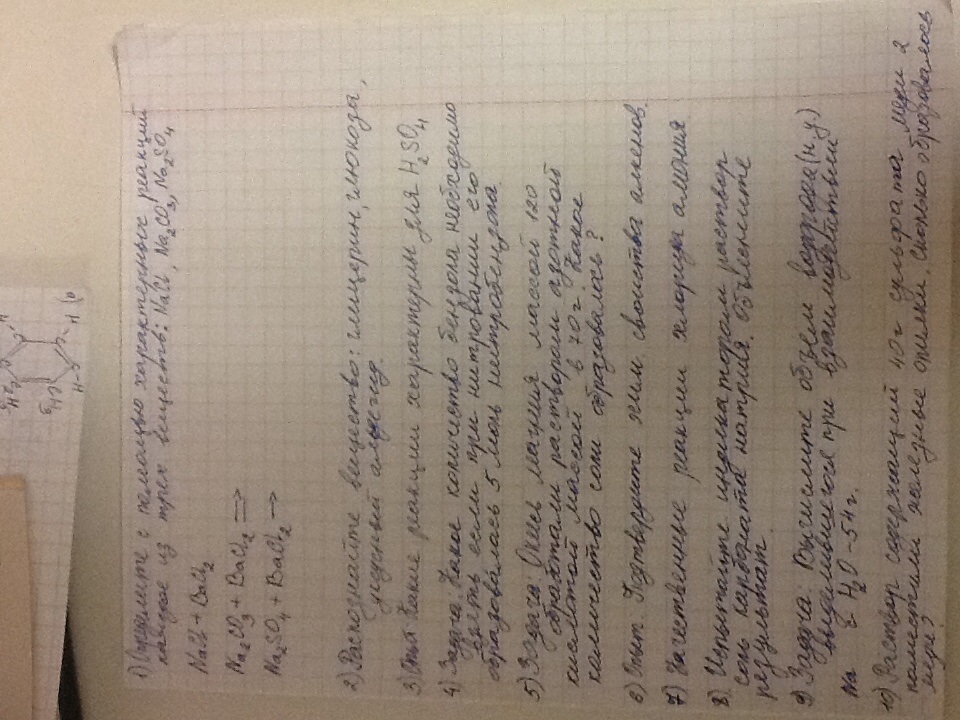 1) Определите с помощью характерных реакций
каждое из трех веществ: NaCl, Na₂CO₃, Na₂SO₄
NaCl + BaCl₂
Na₂CO₃ + BaCl₂ ⟹
Na₂SO₄ + BaCl₂ →
2) Распознайте вещество: глицерин, глюкоза,
уксусный альдегид.
3) Опыт Какие реакции характерны для H₂SO₄
4) Задача: Какое количество бензола необходимо
взять если при нитровании его
образовалось 5 моль нитробензола
5) Задача: Окись магния массой 120
обработали раствором азотной
кислотой массой в 70 г. Какое
количество соли образовалось?
6) Опыт. Подтвердите хим. свойства алкенов.
7) Качественные реакции хлорида алюмия
8) Испытайте индикатором раствор
соль карбоната натрия. Объясните
результат.
9) Задача: Вычислите объем водорода (н,у)
выделившегося при взаимодействии
Na с H₂O - 54 г.
10) Раствор содержащий 40 г сульфата меди 2
поместили железные опилки. Сколько образовалось
меди?